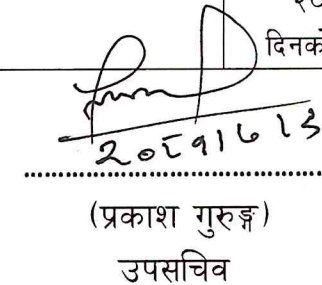 दिनक
२०८१।७।३
(प्रकाश गुरुङ्ग)
उपसचिव